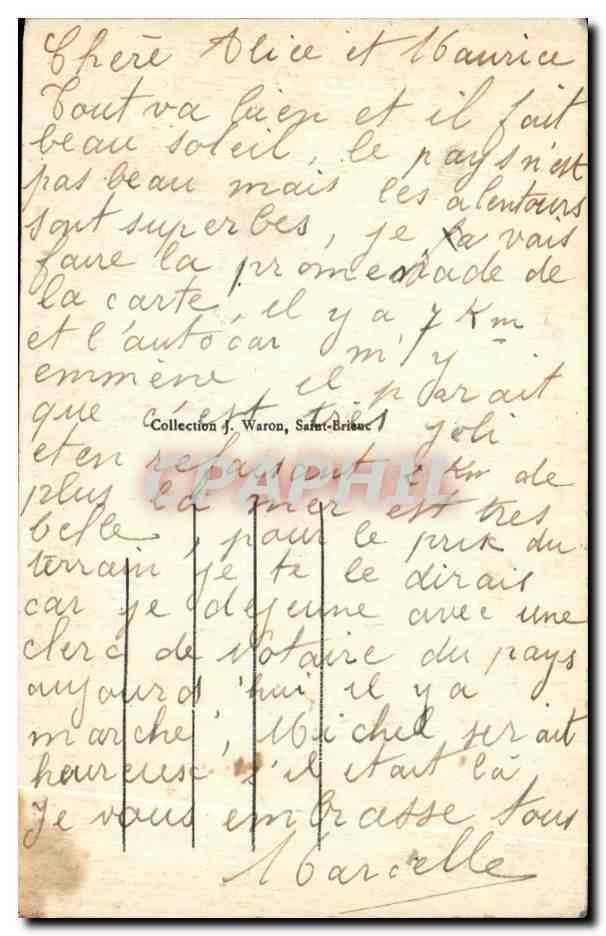 Chère Alice et Maurice
Tout va bien et il fait
beau soleil, le pays n'est
pas beau mais les alentours
sont superbes, je la vais
faire la promenade de
la carte, il y a 7 Km
et l'autocar m'y
emmène, il parait
que c'est très joli
Collection J. Waron, Saint-Brieuc
et en refaisant 2 Km de
CPAPHIL
plus la mer est très
belle, pour le prix du
terrain je te le dirais
car je déjeune avec une
clerc de notaire du pays
aujourd'hui il y a
marché, Michel serait
heureuse s'il était là
Je vous embrasse tous
Marcelle